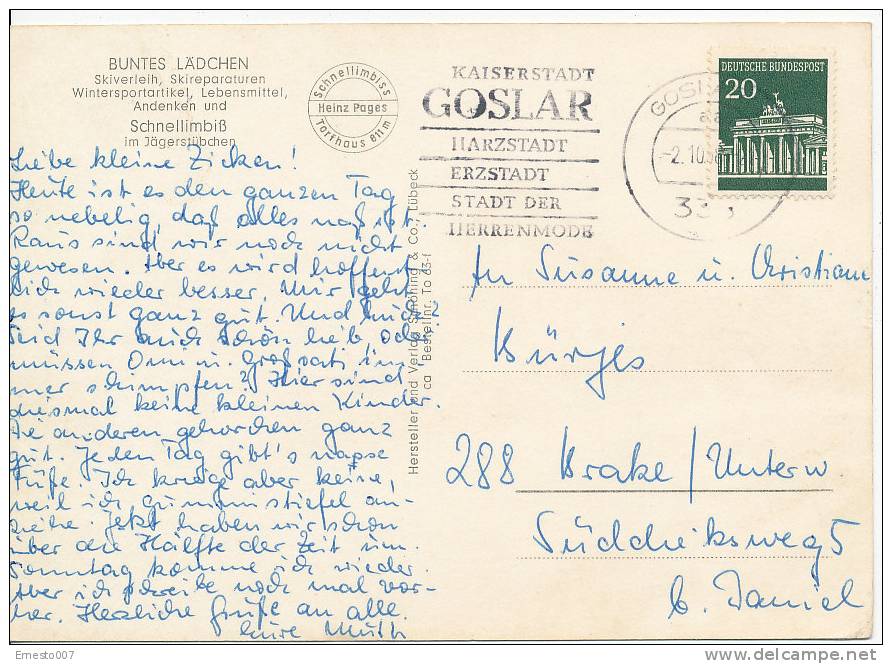 BUNTES LÄDCHEN
Skiverleih, Skireparaturen
Wintersportartikel, Lebensmittel,
Andenken und
Schnellimbiß
im Jägerstübchen
Schnellimbiss
Heinz Pages
Torfhaus 811m
KAISERSTADT
GOSLAR
HARZSTADT
ERZSTADT
STADT DER
HERRENMODE
GOSL
-2.10.
DEUTSCHE BUNDESPOST
20
Liebe kleine Zicken!
Heute ist es den ganzen Tag
so nebelig, daß alles naß ist.
Raus sind wir noch nicht
gewesen. Aber es wird hoffent
lich wieder besser. Mir geht
es sonst ganz gut. Und Euch?
Seid Ihr auch schön lieb, oder
müssen Omi u. Großvati im
mer schimpfen? Hier sind
diesmal keine kleinen Kinder.
Die anderen gehorchen ganz
gut. Jeden Tag gibt's nasse
Füße. Ich kriege aber keine,
weil ich Gummistiefel an-
ziehe. Jetzt haben wir schon
über die Hälfte der Zeit um.
Sonntag komme ich wieder.
Aber ich schreibe noch mal vor-
her. Herzliche Grüße an alle
Eure Mutti
Hersteller und Verlag Schöning & Co., Lübeck
Bestellnr. To 63-f
An Susanne u. Christiane
Bürjes
288 Brake/Unterw
Süddieksweg 5
b. Daniel
Ernesto007
www.delcampe.net